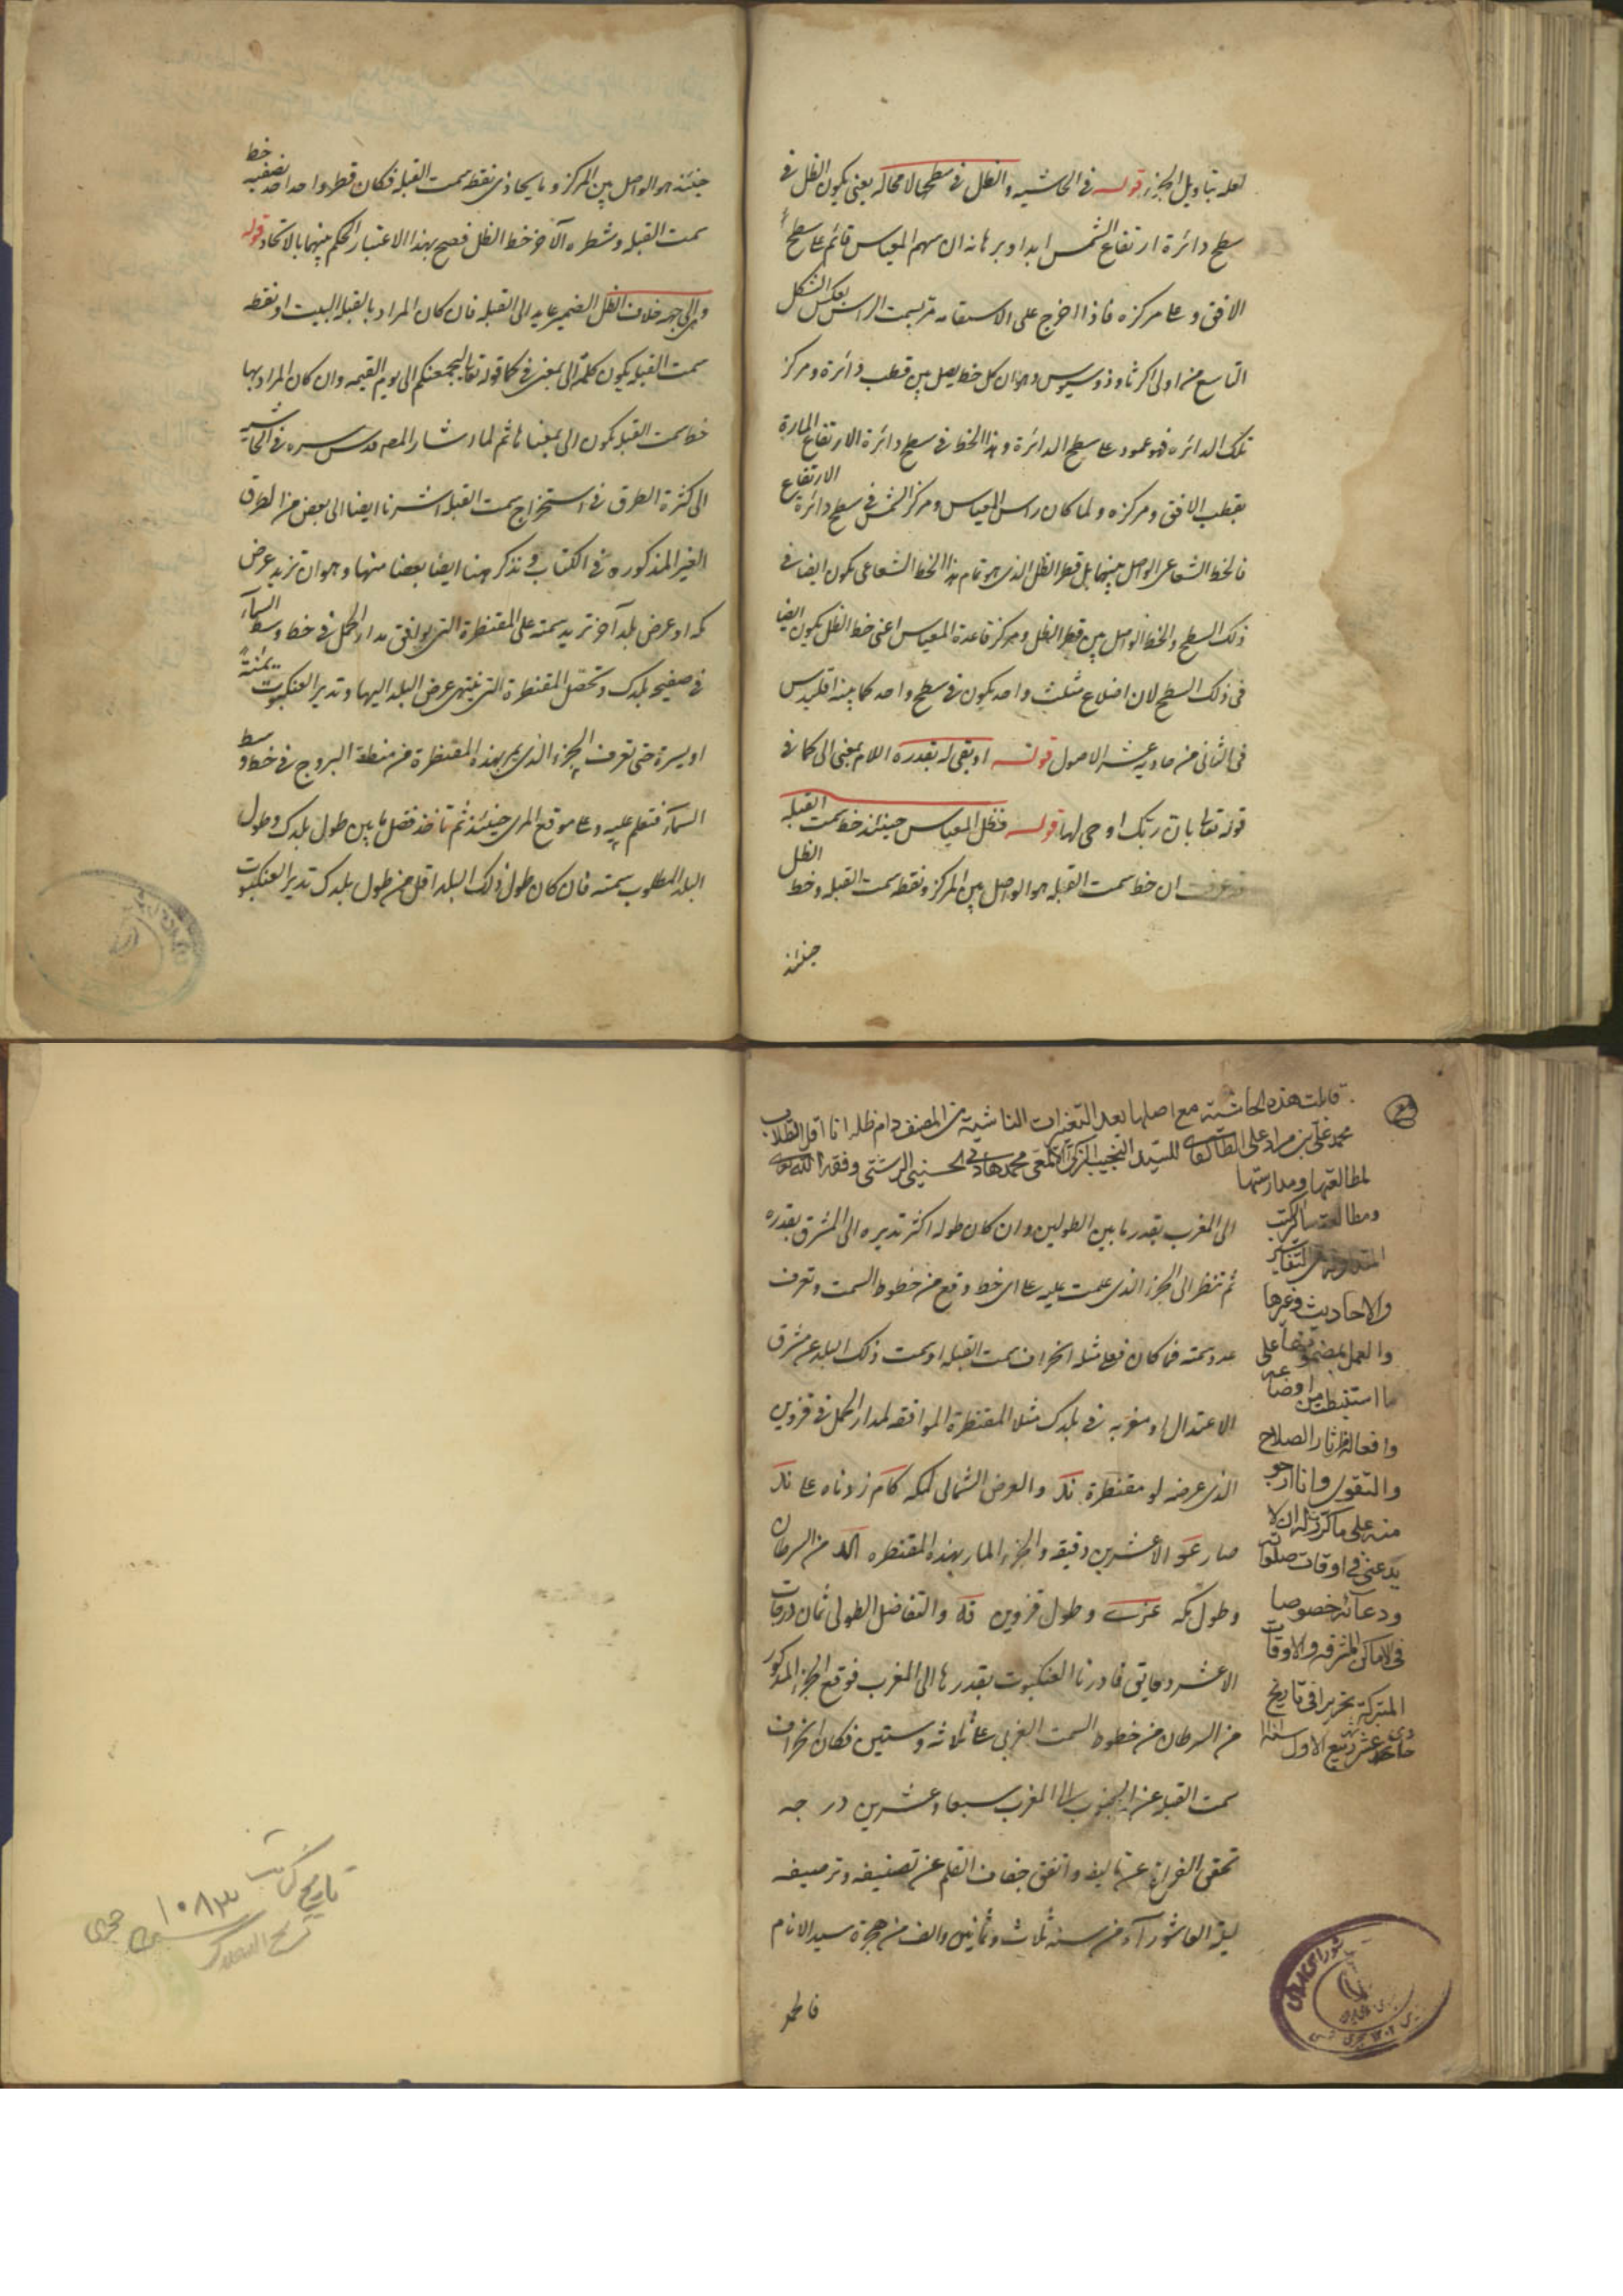 لعله بتاويل الجزء قوله في الحاشيه والظل في سطحها لا محاله يعني يكون الظل في
سطح دائرة ارتفاع الشمس ابدا وبرهانه ان سهم المقياس قائم على سطح
الافق وعلى مركزه فاذا اخرج على الاستقامه مر بسمت الراس بعكس الشكل
التاسع من اولى اكر ثاوذوسيوس وهو ان كل خط يصل بين قطب دائرة ومركز
تلك الدائره فهو عمود على سطح الدائرة وهذا الخط في سطح دائرة الارتفاع المارة
بقطب الافق ومركزه ولما كان راس المقياس ومركز الشمس في سطح دائرة الارتفاع
فالخط الشعاعي الواصل بينهما بل قطر الظل الذي هو تمام هذا الخط الشعاعي يكون ايضا في
ذلك السطح والخط الواصل بين قطر الظل ومركز قاعدة المقياس اعني خط الظل يكون ايضا
في ذلك السطح لان اضلاع مثلث واحد يكون في سطح واحد كما بينه اقليدس
في الثاني من حادية عشر الاصول قوله او بقى له بقدره اللام بمعنى الى كما في
قوله تعالى بان ربك اوحى لها قوله فظل المقياس حينئذ خط سمت القبله
قد عرفت ان خط سمت القبله هو الواصل بين المركز ونقطه سمت القبله وخط الظل
حينئذ
حينئذ هو الواصل بين المركز وما يحاذي نقطه سمت القبله فكان قطر واحد احد نصفيه خط
سمت القبله وشطره الآخر خط الظل فصح بهذا الاعتبار الحكم بينهما بالاتحاد قوله
والى جهه خلاف الظل الضمير عايد الى القبله فان كان المراد بالقبله البيت او نقطه
سمت القبله يكون كلمة الى بمعنى في كما قوله تعالى ليجمعنكم الى يوم القيمه وان كان المراد بها
خط سمت القبله يكون الى بمعناها ثم لما اشار المص قدس سره في الحاشيه
الى كثرة الطرق في استخراج سمت القبله اشرنا ايضا الى بعض من الطرق
الغير المذكوره في الكتاب ونذكر ههنا ايضا بعضا منها وهو ان تزيد عرض
مكه او عرض بلد آخر تريد سمته على المقنطرة التي يوافق مدار الحمل في خط وسط السمآء
في صفيحه بلدك وتحصل المقنطرة التي ينتهي عرض البلد اليها وتدير العنكبوت يمنة
او يسرة حتى تعرف الجزء الذي يمر بهذه المقنطرة من منطقة البروج في خط وسط
السمآء فتعلم عليه وعلى موقع المرى حينئذ ثم تاخذ فضل ما بين طول بلدك وطول
البلد المطلوب سمته فان كان طول ذلك البلد اقل من طول بلدك تدير العنكبوت
قابلت هذه الحاشية مع اصلها بعد التغيرات الناشية من المصنف دام ظله انا اقل الطلاب
محمد علي بن مراد علي الطالقاني للسيد النجيب الزكي الالمعي محمد هادي الحسيني الرشتي وفقه الله تعالى
لمطالعتها ومدارستها
ومطالعة ساير الكتب
المتداولة من التفاسير
والاحاديث وغيرها
والعمل بمضمونها على
ما استنبطت من اوضاعه
وافعاله آثار الصلاح
والتقوى وانا ارجو
منه على ما كررت له ان لا
يدعني في اوقات صلواته
ودعائه خصوصا
في الاماكن المشرفة والاوقات
المتبركة تحريرا في تاريخ
حادي عشر شهر ربيع الاول سنة
الى المغرب بقدر ما بين الطولين وان كان طوله اكثر تديره الى المشرق بقدره
ثم تنظر الى الجزء الذي علمت عليه على اى خط وقع من خطوط السمت وتعرف
عدد سمته فما كان فعلى مثله انحراف سمت القبله او سمت ذلك البلد عن مشرق
الاعتدال او مغربه في بلدك مثلا المقنطرة الموافقه لمدار الحمل في قزوين
الذي عرضه لو مقنطرة ند والعرض الشمالي لمكه كا م زدناه على ند
صار عو الا عشرين دقيقه والجزء المار بهذه المقنطره الد من السرطان
وطول مكه عز ى وطول قزوين فه والتفاضل الطولى ثمان درجات
الا عشر دقايق فادرنا العنكبوت بقدرها الى المغرب فوقع الجزء المذكور
من السرطان من خطوط السمت الغربي على ثلاثه وستين فكان انحراف
سمت القبله عن الجنوب الى المغرب سبعا وعشرين درجه
تحقق الفراغ عن تاليفه واتفق جفاف القلم عن تصنيفه وترصيفه
ليلة العاشورآء من سنه ثلاث وثمانين والف من هجرة سيد الانام
تاريخ كتابت
١٠٨٣
هجرى